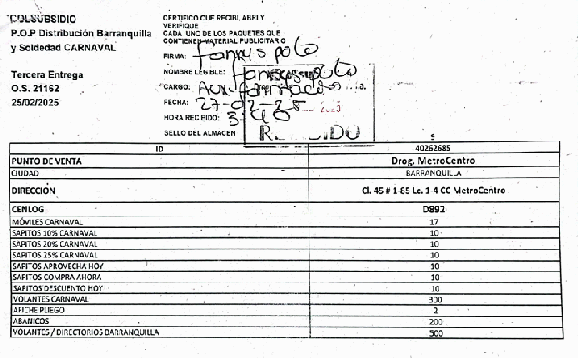 COLSUBSIDIO
P.O.P Distribución Barranquilla
y Soledad CARNAVAL
Tercera Entrega
O.S. 21162
25/02/2025
CERTIFICO QUE RECIBI, ABRI Y
VERIFIQUE
CADA UNO DE LOS PAQUETES QUE
CONTIENEN MATERIAL PUBLICITARIO
FIRMA:
NOMBRE LEGIBLE:
CARGO: Aux
FECHA: 27-02-25
HORA RECIBIDO: 3:40
SELLO DEL ALMACEN
RECIBIDO
5
ID 40262685
PUNTO DE VENTA Drog. MetroCentro
CIUDAD BARRANQUILLA
DIRECCIÓN Cl. 45 # 1-85 Lc. 1-4 CC MetroCentro
CENLOG D892
MÓVILES CARNAVAL 17
SAPITOS 10% CARNAVAL 10
SAPITOS 20% CARNAVAL 10
SAPITOS 25% CARNAVAL 10
SAPITOS APROVECHA HOY 10
SAPITOS COMPRA AHORA 10
SAPITOS DESCUENTO HOY 10
VOLANTES CARNAVAL 300
AFICHE PLIEGO 2
ABANICOS 200
VOLANTES / DIRECTORIOS BARRANQUILLA 500